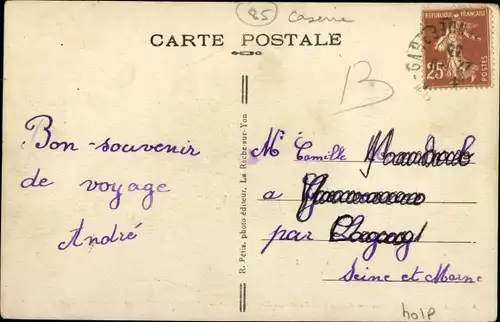 85
Caserne
CARTE POSTALE
RÉPUBLIQUE FRANÇAISE
25c
POSTES
B
Bon souvenir
de voyage
André
R. Pétis, photo éditeur, La Roche-sur-Yon
Mr Camille
a
par
Seine et Marne